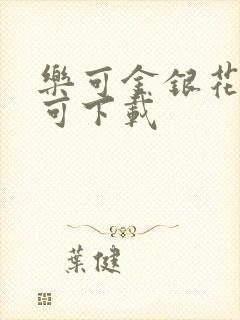 樂可金銀花
可下載
葉健